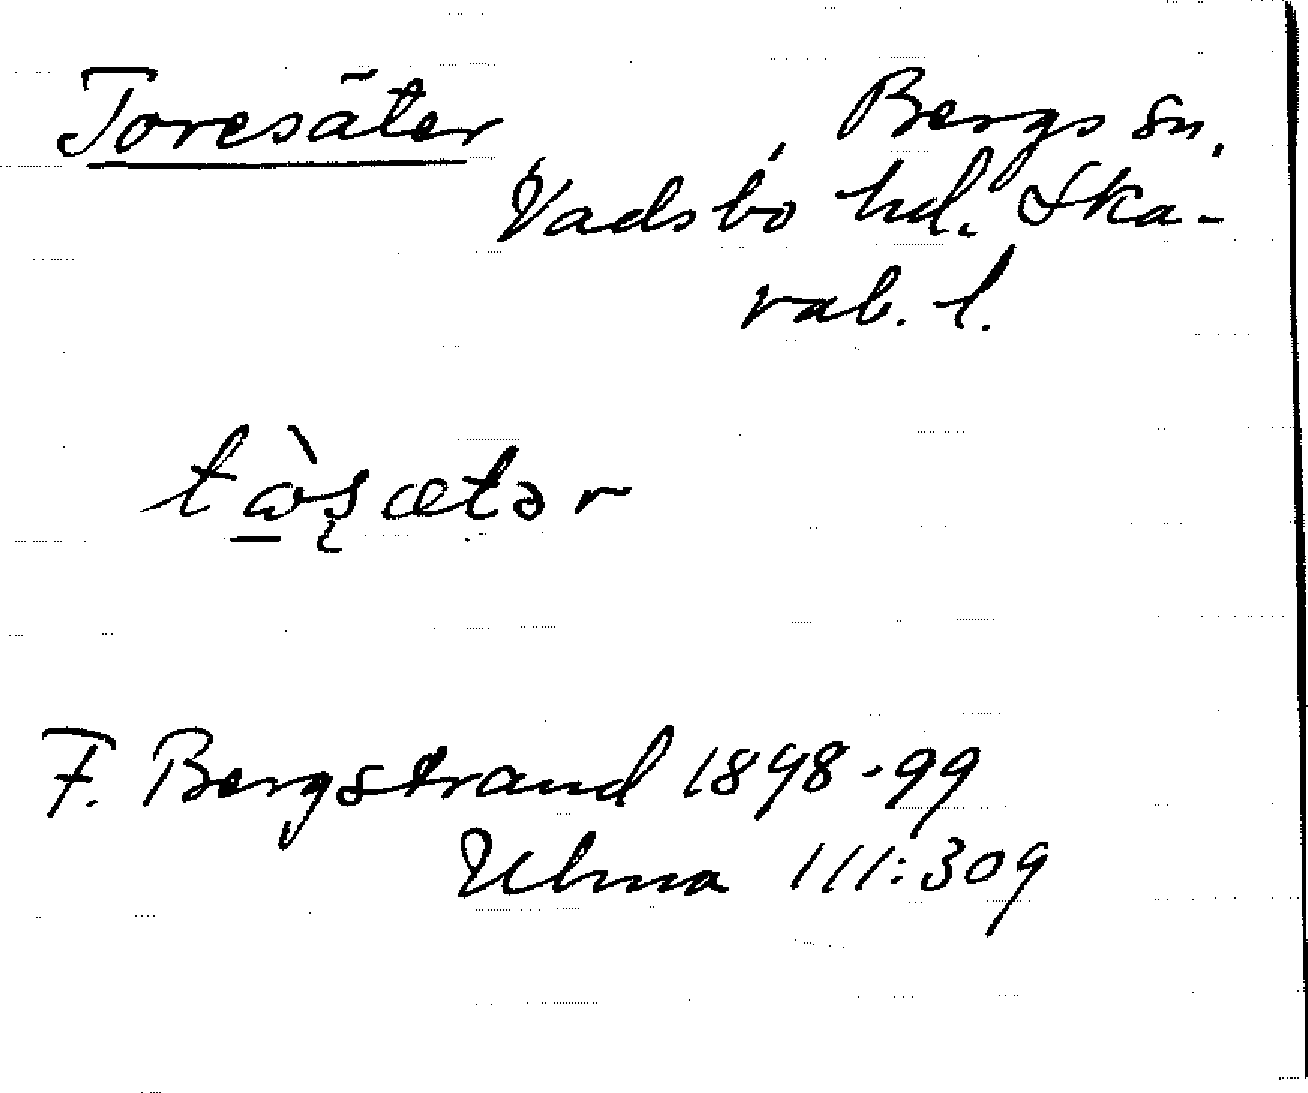 Toresäter
Bergs sn,
Vadsbo hd. Ska-
rab. l.
tὼ̱ʂætər
F. Bergstrand 1898-99
Ulma 111:309